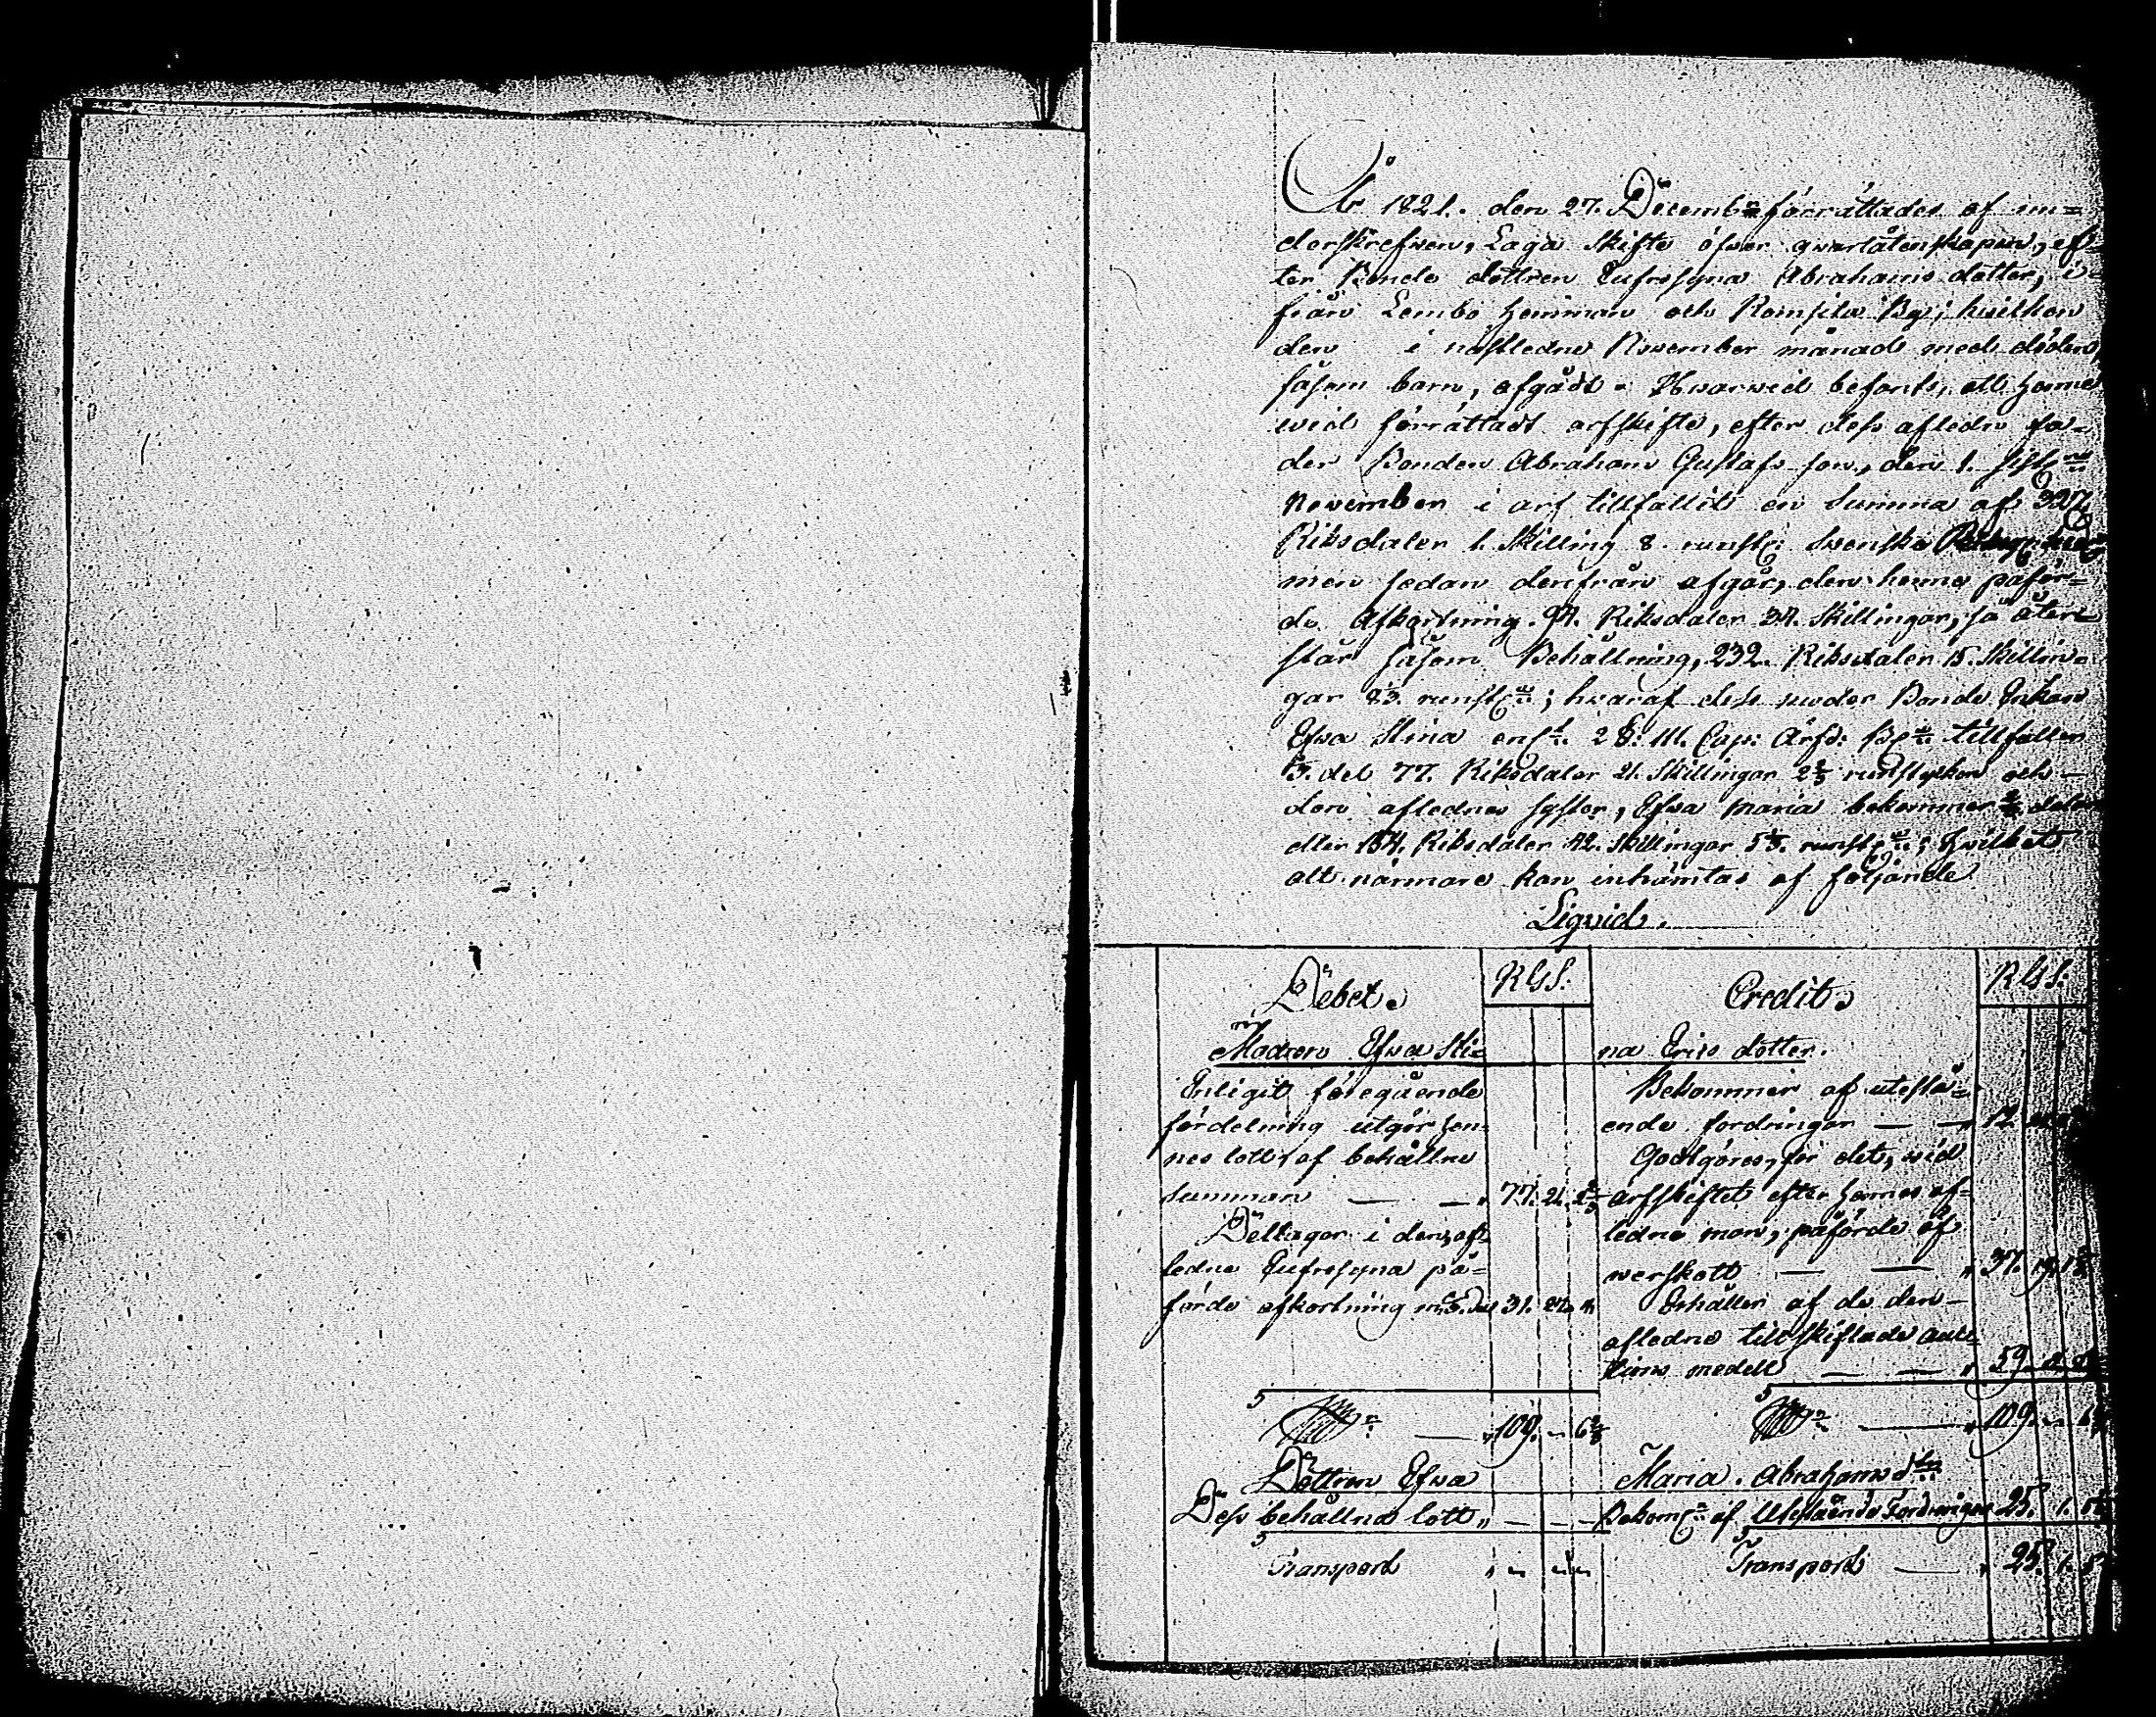 År 1821. den 27. Decembr förrättades af un=
derskrefwen, Laga Skifte öfwer qwarlåtenskapen, ef=
ter Bonde dottren Eufrosyna Abrahams dotter, i=
från Lembo Hemman och Romsila By; hwilken
den i nästledne November månad med döden,
såsom barn, afgådt. Hwarwid befants, att henne
wid förrättadt arfskifte, efter dess afledne fa=
der Bonden Abraham Gustafs son, den 1. sistl:ne
November i arf tillfallit en Summa af 327
Riksdaler 1. Skilling 8. runst: Swenska
men sedan derifrån afgår, den henne påför=
de Afkortning 94. Riksdaler 34. Skillingar, så åter=
står såsom Behållning, 232. Riksdaler 15. Skillin=
gar 8 runst:; hwaraf dess moder Bonde Enkan
Efwa Stina enl: 2 §: III. Cap: Ärfd: B: tillfaller
1/3. del 77. Riksdaler 21. Skillingar 2 2/3 runstycken och
den aflednes syster, Efwa Maria bekommer 2/3 delar
eller 154. Riksdaler 42. Skillingar 5 1/3. runst:; Hwilket
alt närmare kan inhämtas af följande
Liqvid.
Debet. RGS. Credit. RGS.
Modren Efwa Sti= na Erics dotter.
Enligit föregående
fördelning utgör hen=
nes lott af behållne
summan — — " 77. 21. 2 2/3
Deltager i den, af=
ledne Eufrosyna på=
förde afkortning m. 1/3. del 31. 27. 4
S:a — " 109. – 6 2/3
Bekommer af utestå=
ende fordringar — — " 12.
Godtgöres, för det, wid
arfskiftet efter hennes af=
ledne man, påförde öf
werskott — — " 37. 19. 1
Erhåller af de den
afledne tillskiftade auk=
tions medell — — " 59
S:a — " 109. – 6
Dottren Efwa Maria. Abrahams dtr.
Dess behållna lott " – – – Bekom: af Utestående Fordringar 25. 1. 5
Transport " – – – Transport — " 25. 1. 5